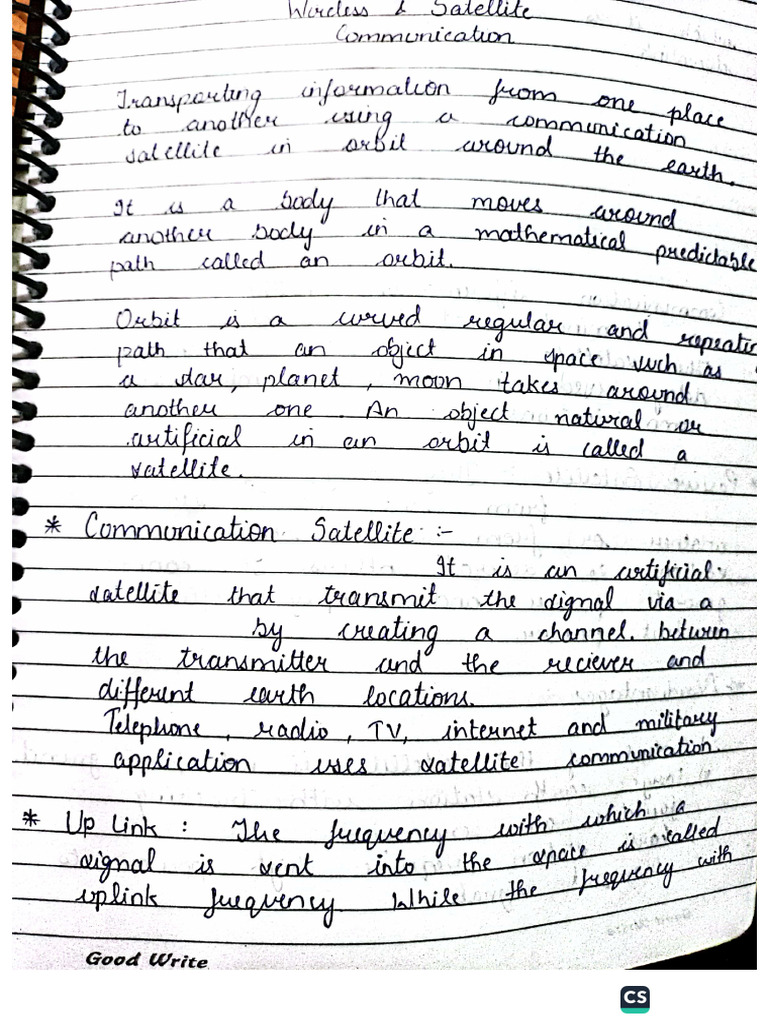 Wireless & Satellite
Communication
Transporting information from one place
to another using a communication
satellite in orbit around the earth.
It is a body that moves around
another body in a mathematical predictable
path called an orbit.
Orbit is a curved regular and repeatin
path that an object in space such as
a star, planet, moon takes around
another one. An object natural or
artificial in an orbit is called a
satellite.
* Communication Satellite :-
It is an artificial
satellite that transmit the signal via a
by creating a channel. between
the transmitter and the reciever and
different earth locations.
Telephone, radio, TV, internet and military
application uses satellite communication.
* Up Link : The frequency with which a
signal is sent into the space is called
uplink frequency. While the frequency with
Good Write
CS